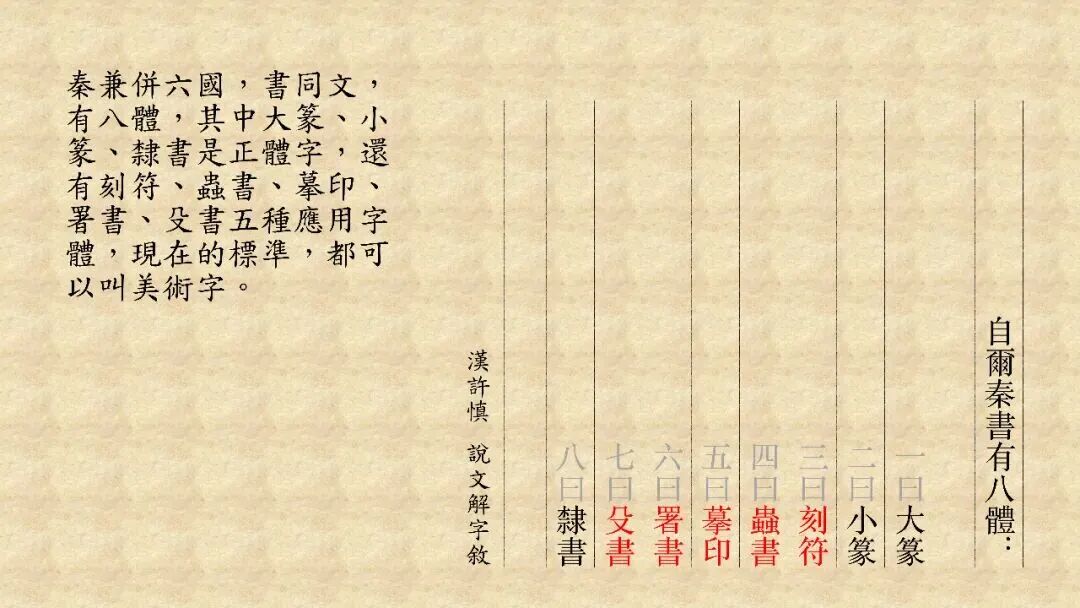 秦兼併六國，書同文，
有八體，其中大篆、小
篆、隸書是正體字，還
有刻符、蟲書、摹印、
署書、殳書五種應用字
體，現在的標準，都可
以叫美術字。
自爾秦書有八體：
一曰大篆
二曰小篆
三曰刻符
四曰蟲書
五曰摹印
六曰署書
七曰殳書
八曰隸書
漢許慎 說文解字敘